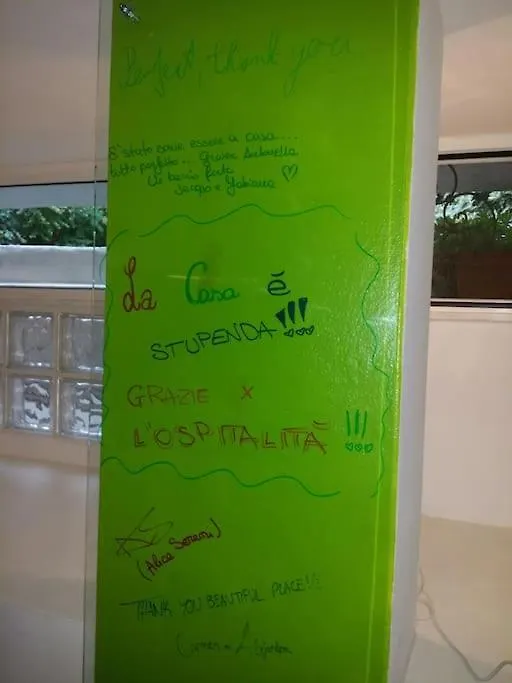 Perfect, thank you
E' stato come essere a casa....
tutto perfetto... Grazie Antonella
Un bacio forte
Jacopo e Fabiana
La Casa è
STUPENDA!!!
GRAZIE x
L'OSPITALITÀ !!!
(Alice Sereni)
THANK YOU BEAUTIFUL PLACE!!!
Carmen